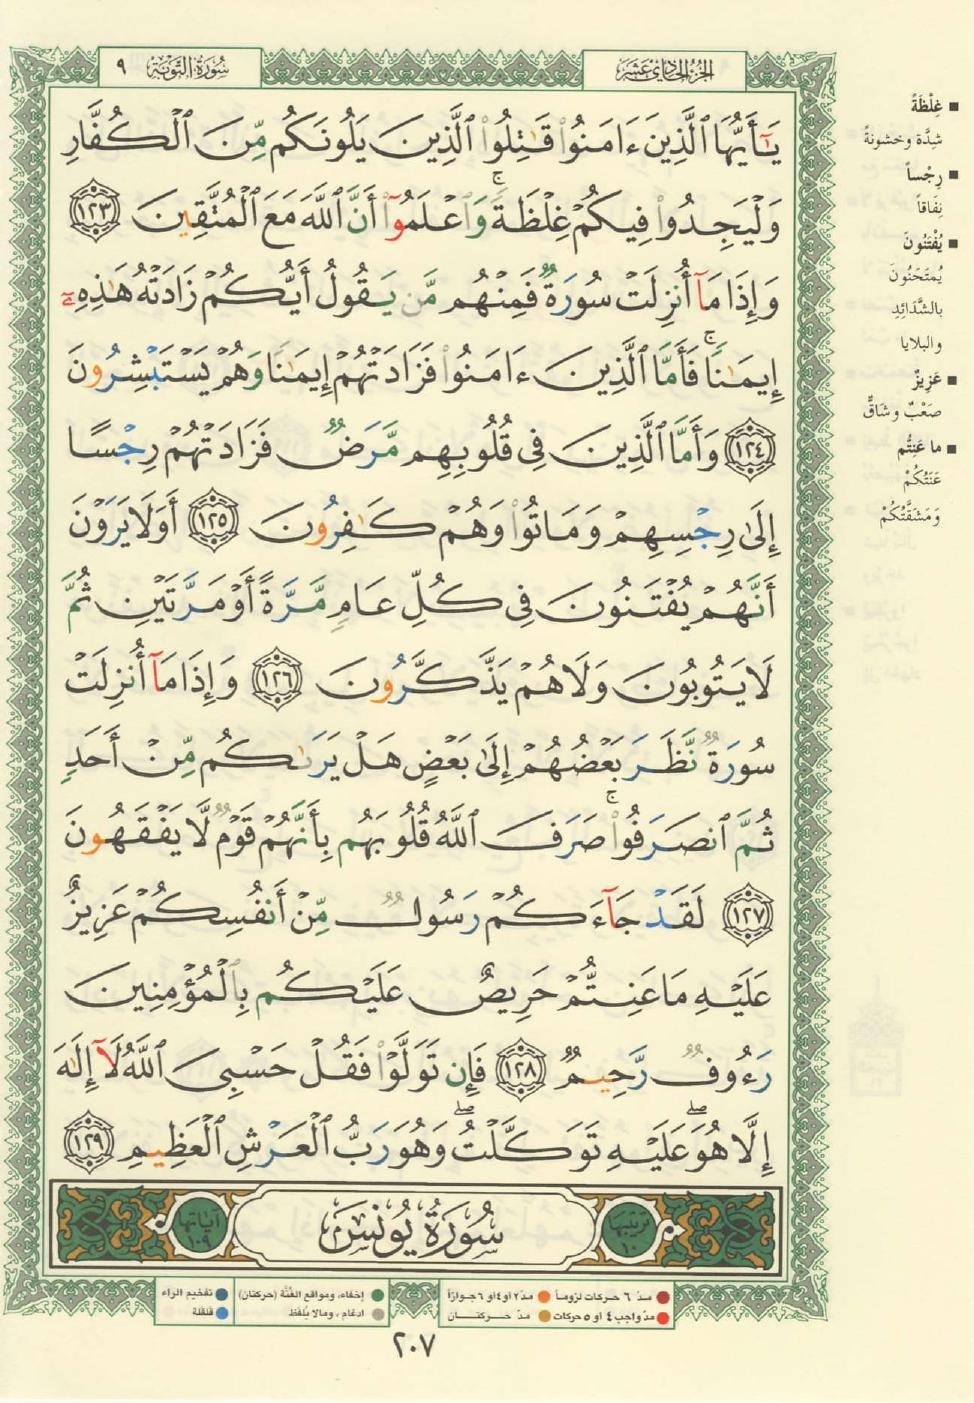 الجزء الحادي عشر
سورة التوبة ٩
يَـٰٓأَيُّهَا ٱلَّذِينَ ءَامَنُوا۟ قَـٰتِلُوا۟ ٱلَّذِينَ يَلُونَكُم مِّنَ ٱلْكُفَّارِ
وَلْيَجِدُوا۟ فِيكُمْ غِلْظَةً ۚ وَٱعْلَمُوٓا۟ أَنَّ ٱللَّهَ مَعَ ٱلْمُتَّقِينَ ١٢٣
وَإِذَا مَآ أُنزِلَتْ سُورَةٌ فَمِنْهُم مَّن يَقُولُ أَيُّكُمْ زَادَتْهُ هَـٰذِهِۦٓ
إِيمَـٰنًا ۚ فَأَمَّا ٱلَّذِينَ ءَامَنُوا۟ فَزَادَتْهُمْ إِيمَـٰنًا وَهُمْ يَسْتَبْشِرُونَ
١٢٤ وَأَمَّا ٱلَّذِينَ فِى قُلُوبِهِم مَّرَضٌ فَزَادَتْهُمْ رِجْسًا
إِلَىٰ رِجْسِهِمْ وَمَاتُوا۟ وَهُمْ كَـٰفِرُونَ ١٢٥ أَوَلَا يَرَوْنَ
أَنَّهُمْ يُفْتَنُونَ فِى كُلِّ عَامٍ مَّرَّةً أَوْ مَرَّتَيْنِ ثُمَّ
لَا يَتُوبُونَ وَلَا هُمْ يَذَّكَّرُونَ ١٢٦ وَإِذَا مَآ أُنزِلَتْ
سُورَةٌ نَّظَرَ بَعْضُهُمْ إِلَىٰ بَعْضٍ هَلْ يَرَىٰكُم مِّنْ أَحَدٍ
ثُمَّ ٱنصَرَفُوا۟ ۚ صَرَفَ ٱللَّهُ قُلُوبَهُم بِأَنَّهُمْ قَوْمٌ لَّا يَفْقَهُونَ
١٢٧ لَقَدْ جَآءَكُمْ رَسُولٌ مِّنْ أَنفُسِكُمْ عَزِيزٌ
عَلَيْهِ مَا عَنِتُّمْ حَرِيصٌ عَلَيْكُم بِٱلْمُؤْمِنِينَ
رَءُوفٌ رَّحِيمٌ ١٢٨ فَإِن تَوَلَّوْا۟ فَقُلْ حَسْبِىَ ٱللَّهُ لَآ إِلَـٰهَ
إِلَّا هُوَ ۖ عَلَيْهِ تَوَكَّلْتُ ۖ وَهُوَ رَبُّ ٱلْعَرْشِ ٱلْعَظِيمِ ١٢٩
ترتيبها ١٠ سُورَةُ يُونُسَ آياتها ١٠٩
غِلْظَةً
شِدَّة وخشونةً
رِجْساً
نِفَاقاً
يُفْتَنُونَ
يُمتَحَنُونَ
بالشَّدَائِدِ
والبلايا
عَزِيزٌ
صَعْبٌ وشَاقٌّ
ما عَنِتُّم
عَنَتُكُمْ
وَمَشَقَّتُكُمْ
مدّ ٦ حركات لزوماً مدّ ٢ او ٤ او ٦ جوازاً
مدّ واجب ٤ او ٥ حركات مدّ حركتان
إخفاء، ومواقع الغُنَّة (حركتان) تفخيم الراء
ادغام ، ومالا يُلفظ قلقلة
٢٠٧